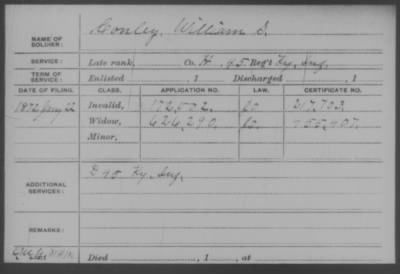 NAME OF SOLDIER: Conley, William S.
SERVICE: Late rank, Co. H. 45 Reg't Ky. Inf.
TERM OF SERVICE: Enlisted , 1 Discharged , 1
DATE OF FILING. CLASS. APPLICATION NO. LAW. CERTIFICATE NO.
1872 Jany 22 Invalid, 172,502.
Widow, 626,290.
Minor,
ADDITIONAL SERVICES: Ky. Inf.
REMARKS:
Died , 1 , at